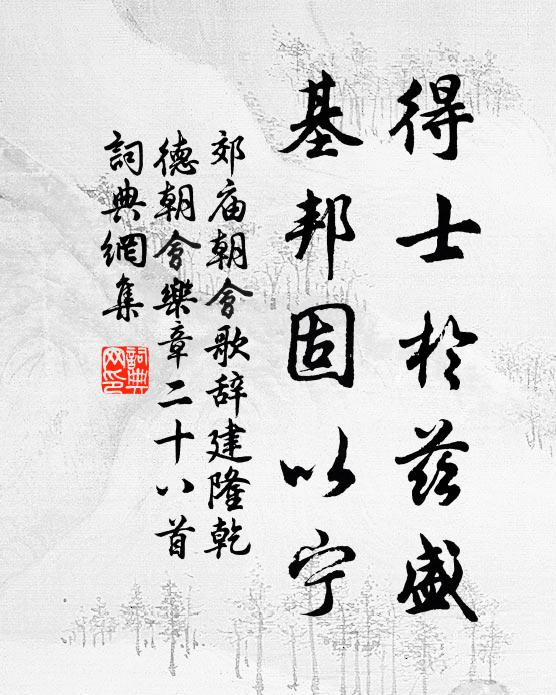 得士於茲盛
基邦固以宁
郊庙朝會歌辞建隆乾
德朝會樂章二十八首
詞典網集
詞典
网印